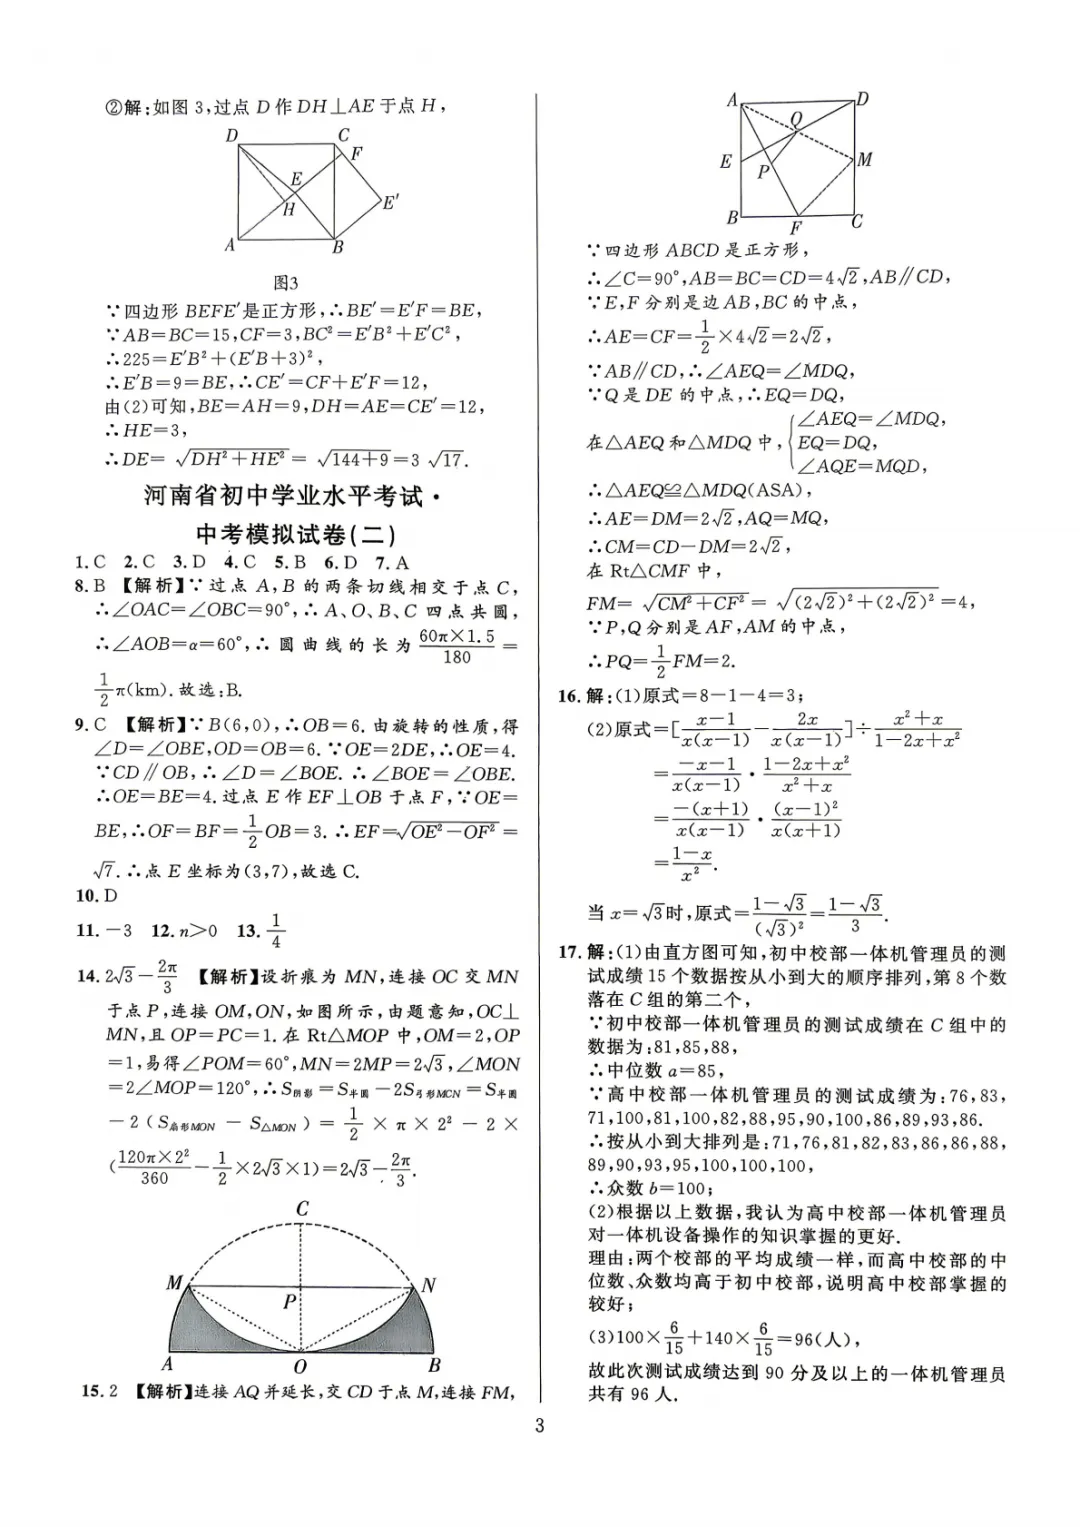 ②解:如图 3,过点 D 作 DH⊥AE 于点 H,
D
C
F
E
H
E′
A
B
图3
∵四边形 BEFE′是正方形,∴BE′=E′F=BE,
∵AB=BC=15,CF=3,BC²=E′B²+E′C²,
∴225=E′B²+(E′B+3)²,
∴E′B=9=BE,∴CE′=CF+E′F=12,
由(2)可知,BE=AH=9,DH=AE=CE′=12,
∴HE=3,
∴DE=√(DH²+HE²)=√(144+9)=3√17.
河南省初中学业水平考试·
中考模拟试卷(二)
1. C 2. C 3. D 4. C 5. B 6. D 7. A
8. B 【解析】∵过点 A,B 的两条切线相交于点 C,
∴∠OAC=∠OBC=90°,∴A、O、B、C 四点共圆,
∴∠AOB=α=60°,∴圆曲线的长为 60π×1.5/180 =
1/2π(km).故选:B.
9. C 【解析】∵B(6,0),∴OB=6.由旋转的性质,得
∠D=∠OBE,OD=OB=6.∵OE=2DE,∴OE=4.
∵CD∥OB,∴∠D=∠BOE.∴∠BOE=∠OBE.
∴OE=BE=4.过点 E 作 EF⊥OB 于点 F,∵OE=
BE,∴OF=BF=1/2OB=3.∴EF=√(OE²−OF²)=
√7.∴点 E 坐标为(3,7),故选 C.
10. D
11. −3 12. n>0 13. 1/4
14. 2√3−2π/3 【解析】设折痕为 MN,连接 OC 交 MN
于点 P,连接 OM,ON,如图所示,由题意知,OC⊥
MN,且 OP=PC=1.在 Rt△MOP 中,OM=2,OP
=1,易得∠POM=60°,MN=2MP=2√3,∠MON
=2∠MOP=120°,∴S阴影=S半圆−2S弓形MCN=S半圆
−2(S扇形MON−S△MON)=1/2×π×2²−2×
(120π×2²/360−1/2×2√3×1)=2√3−2π/3.
C
M
N
P
A
O
B
15. 2 【解析】连接 AQ 并延长,交 CD 于点 M,连接 FM,
A
D
Q
E
M
P
B
F
C
∵四边形 ABCD 是正方形,
∴∠C=90°,AB=BC=CD=4√2,AB∥CD,
∵E,F 分别是边 AB,BC 的中点,
∴AE=CF=1/2×4√2=2√2,
∵AB∥CD,∴∠AEQ=∠MDQ,
∵Q 是 DE 的中点,∴EQ=DQ,
∠AEQ=∠MDQ,
在△AEQ 和△MDQ 中,{EQ=DQ,
∠AQE=MQD,
∴△AEQ≌△MDQ(ASA),
∴AE=DM=2√2,AQ=MQ,
∴CM=CD−DM=2√2,
在 Rt△CMF 中,
FM=√(CM²+CF²)=√((2√2)²+(2√2)²)=4,
∵P,Q 分别是 AF,AM 的中点,
∴PQ=1/2FM=2.
16. 解:(1)原式=8−1−4=3;
(2)原式=[(x−1)/(x(x−1))−2x/(x(x−1))]÷(x²+x)/(1−2x+x²)
=(−x−1)/(x(x−1))·(1−2x+x²)/(x²+x)
=−(x+1)/(x(x−1))·(x−1)²/(x(x+1))
=(1−x)/x².
当 x=√3时,原式=(1−√3)/(√3)²=(1−√3)/3.
17. 解:(1)由直方图可知,初中校部一体机管理员的测
试成绩 15 个数据按从小到大的顺序排列,第 8 个数
落在 C 组的第二个,
∵初中校部一体机管理员的测试成绩在 C 组中的
数据为:81,85,88,
∴中位数 a=85,
∵高中校部一体机管理员的测试成绩为:76,83,
71,100,81,100,82,88,95,90,100,86,89,93,86.
∴按从小到大排列是:71,76,81,82,83,86,86,88,
89,90,93,95,100,100,100,
∴众数 b=100;
(2)根据以上数据,我认为高中校部一体机管理员
对一体机设备操作的知识掌握的更好.
理由:两个校部的平均成绩一样,而高中校部的中
位数、众数均高于初中校部,说明高中校部掌握的
较好;
(3)100×6/15+140×6/15=96(人),
故此次测试成绩达到 90 分及以上的一体机管理员
共有 96 人.
3